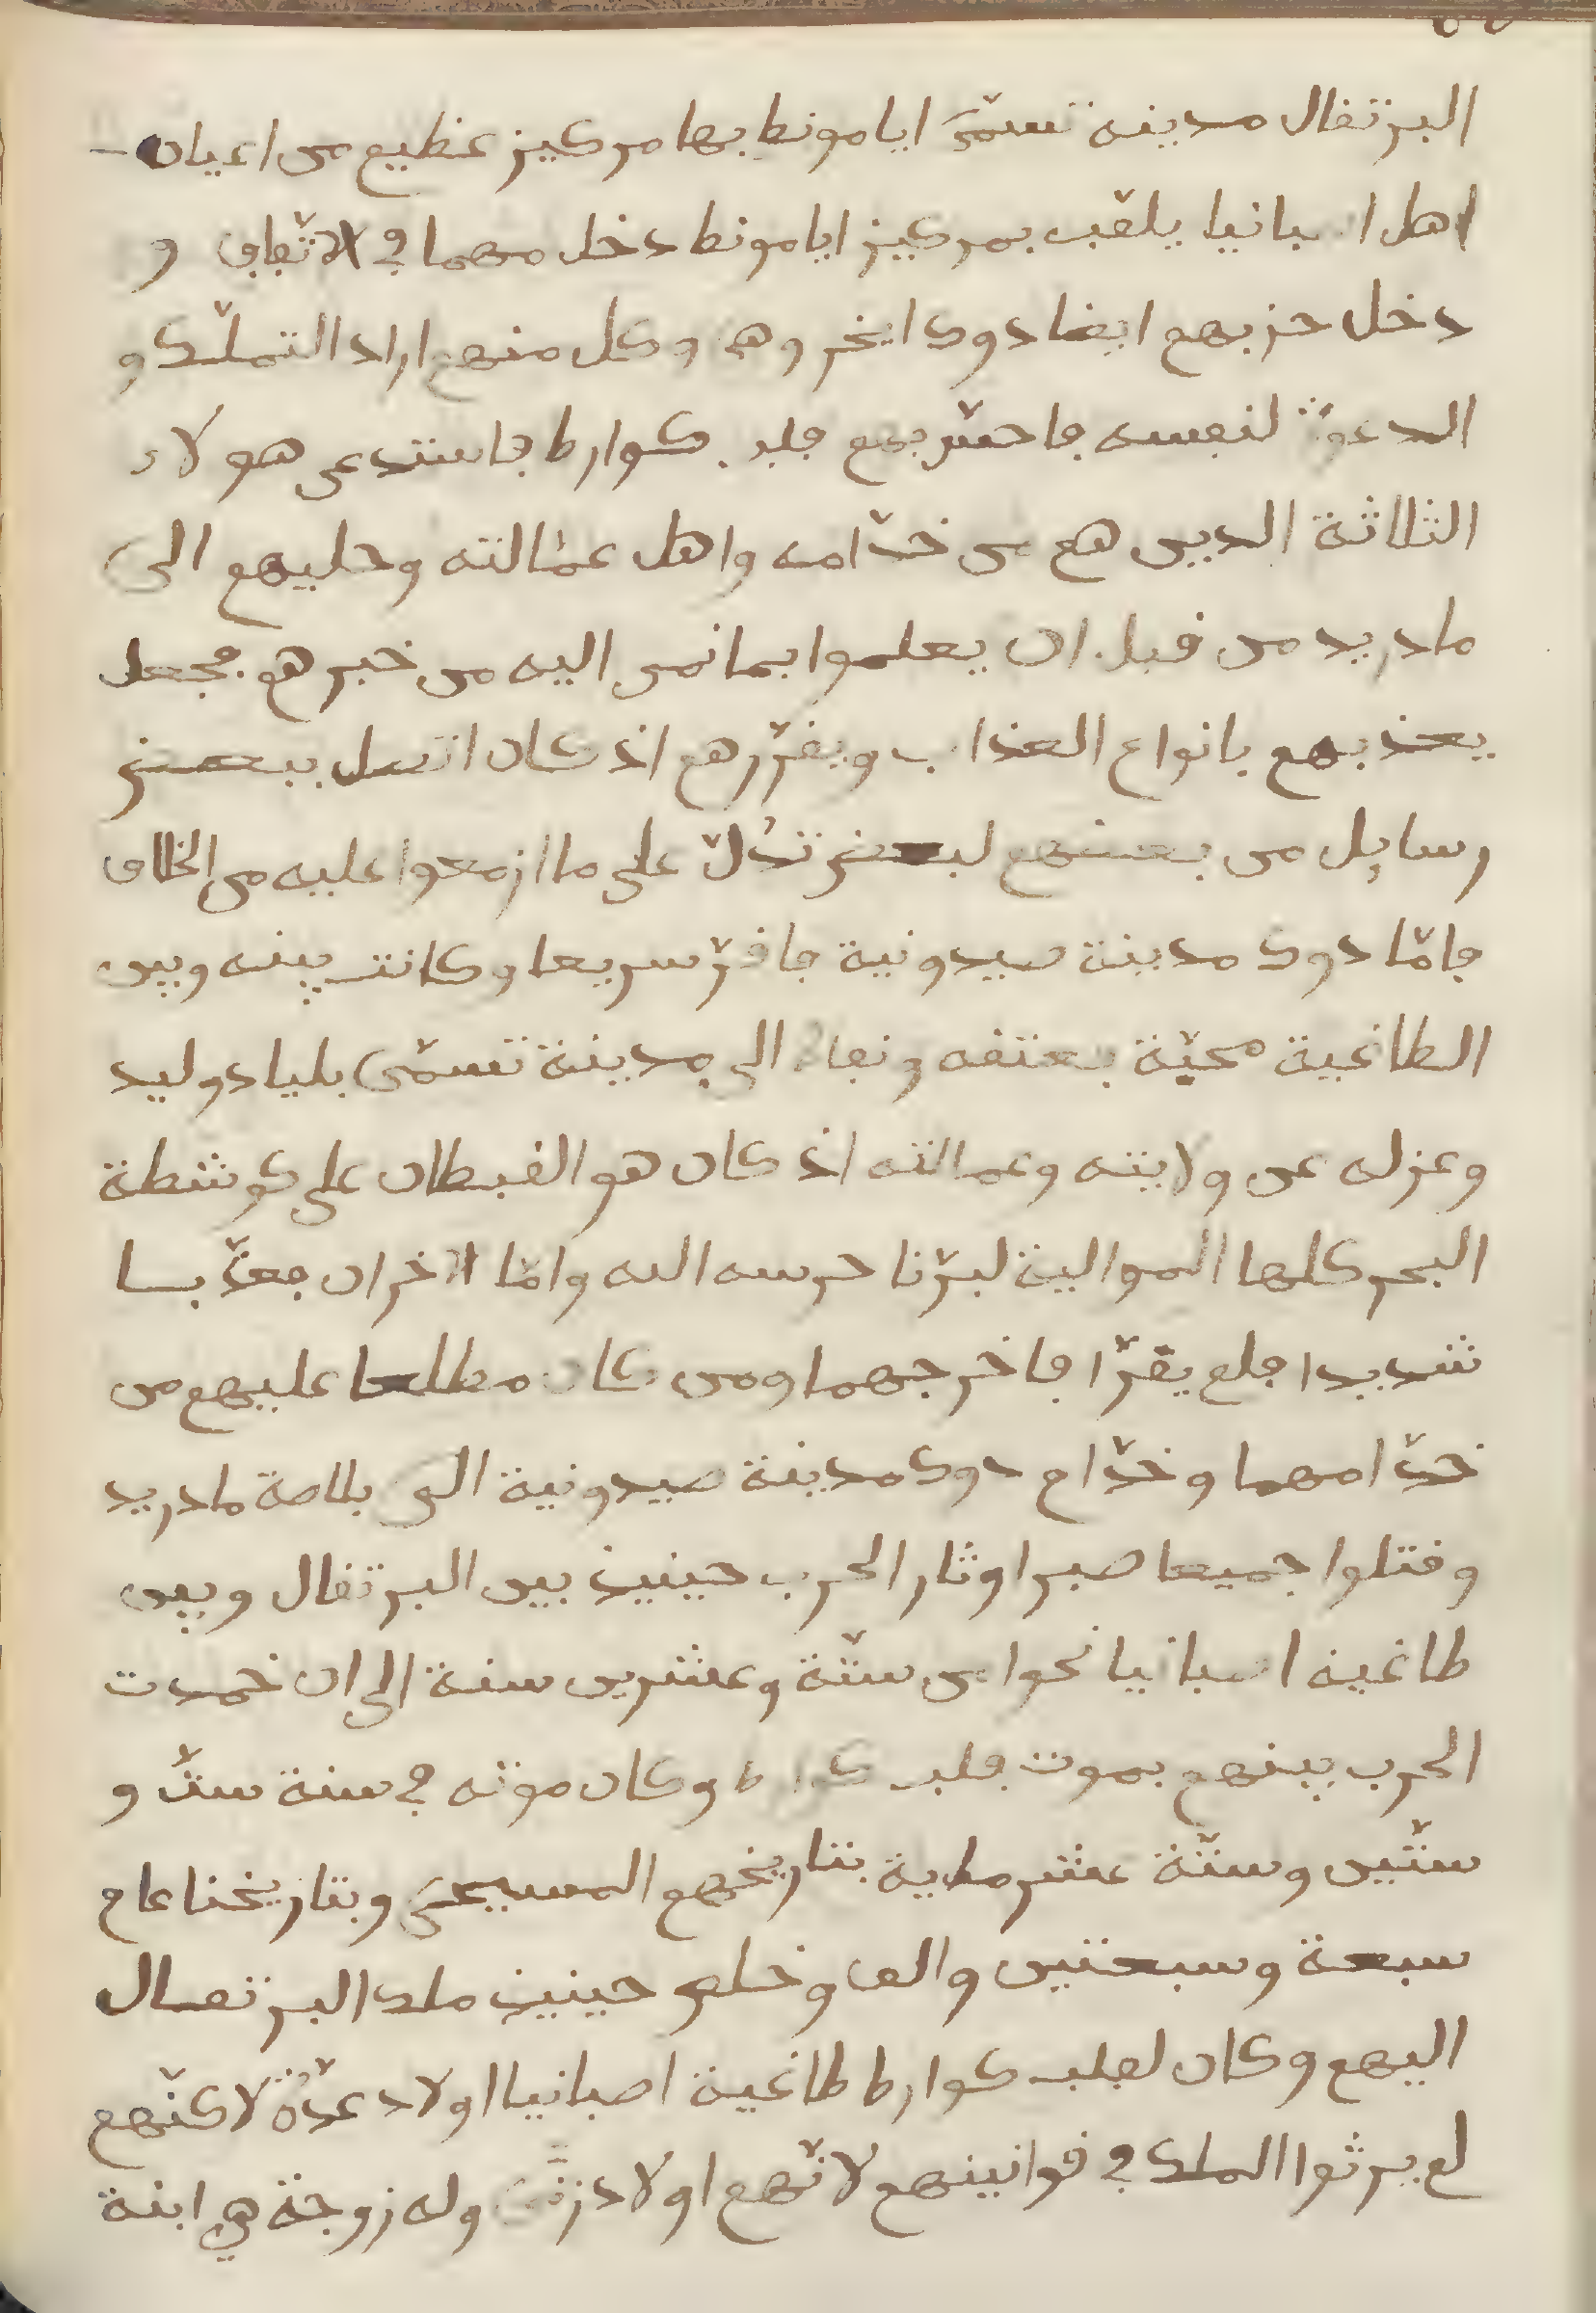 البرتقال مدينة تسمّى ايامونط بها مركيز عظيم من اعيان
اهل اصبانيا يلقب بمركيز ايامونط دخل معهما في الاتّفاق و
دخل حزبهم ايضا دوك ايخر وهم وكل منهم اراد التملّك و
الدعوة لنفسه فاحسّ بهم فلب كوارط فاستدعى هولاء
الثلاثة الذين هم من خدّامه واهل عمالته وجلبهم الى
مادريد من قبل ان يعلموا بما نمى اليه من خبرهم فجعل
يعذبهم بانواع العذاب ويقرّرهم اذ كان اتصل ببعض
رسايل من بعضهم لبعض تدُلّ على ما ازمعوا عليه من الخلاف
فامّا دوك مدينة صيدونية فاقرّ سريعا وكانت بينه وبين
الطاغية محبّة فعتقه ونفاه الى مدينة تسمّى بليادوليد
وعزله عن ولايته وعمالته اذ كان هو القبطان على كوشطة
البحر كلها الموالية لبرّنا حرسه الله وامّا الاخران فعذّبا
شديدا فلم يقرّا فاخرجهما ومن كان مطلعا عليهم من
خدّامهما وخدّام دوك مدينة صيدونية الى بلاصة مادريد
وقتلوا جميعا صبرا وثار الحرب حينيذ بين البرتقال وبين
طاغية اصبانيا نحوا من ستّة وعشرين سنة الى ان خمدت
الحرب بينهم بموت فلب كوارط وكان موته في سنة ستّ و
ستّين وستّة عشر ماية بتاريخهم المسيحي وبتاريخنا عام
سبعة وسبعين والف وخلص حينيذ ملك البرتقال
اليهم وكان لفلب كوارط طاغية اصبانيا اولاد عدّة لاكنّهم
لم يرثوا الملك في قوانينهم لانّهم اولاد زنًى وله زوجة هي ابنة